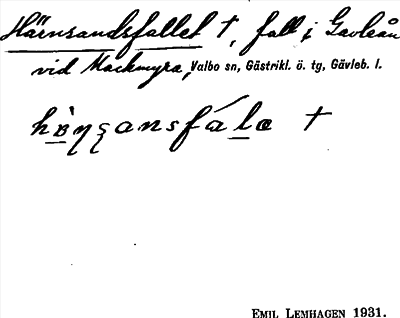 Härnsandsfallet †, fall i Gavleån
vid Mackmyra, Valbo sn, Gästrikl. ö. tg, Gävleb. l.
†
EMIL LEMHAGEN 1931.